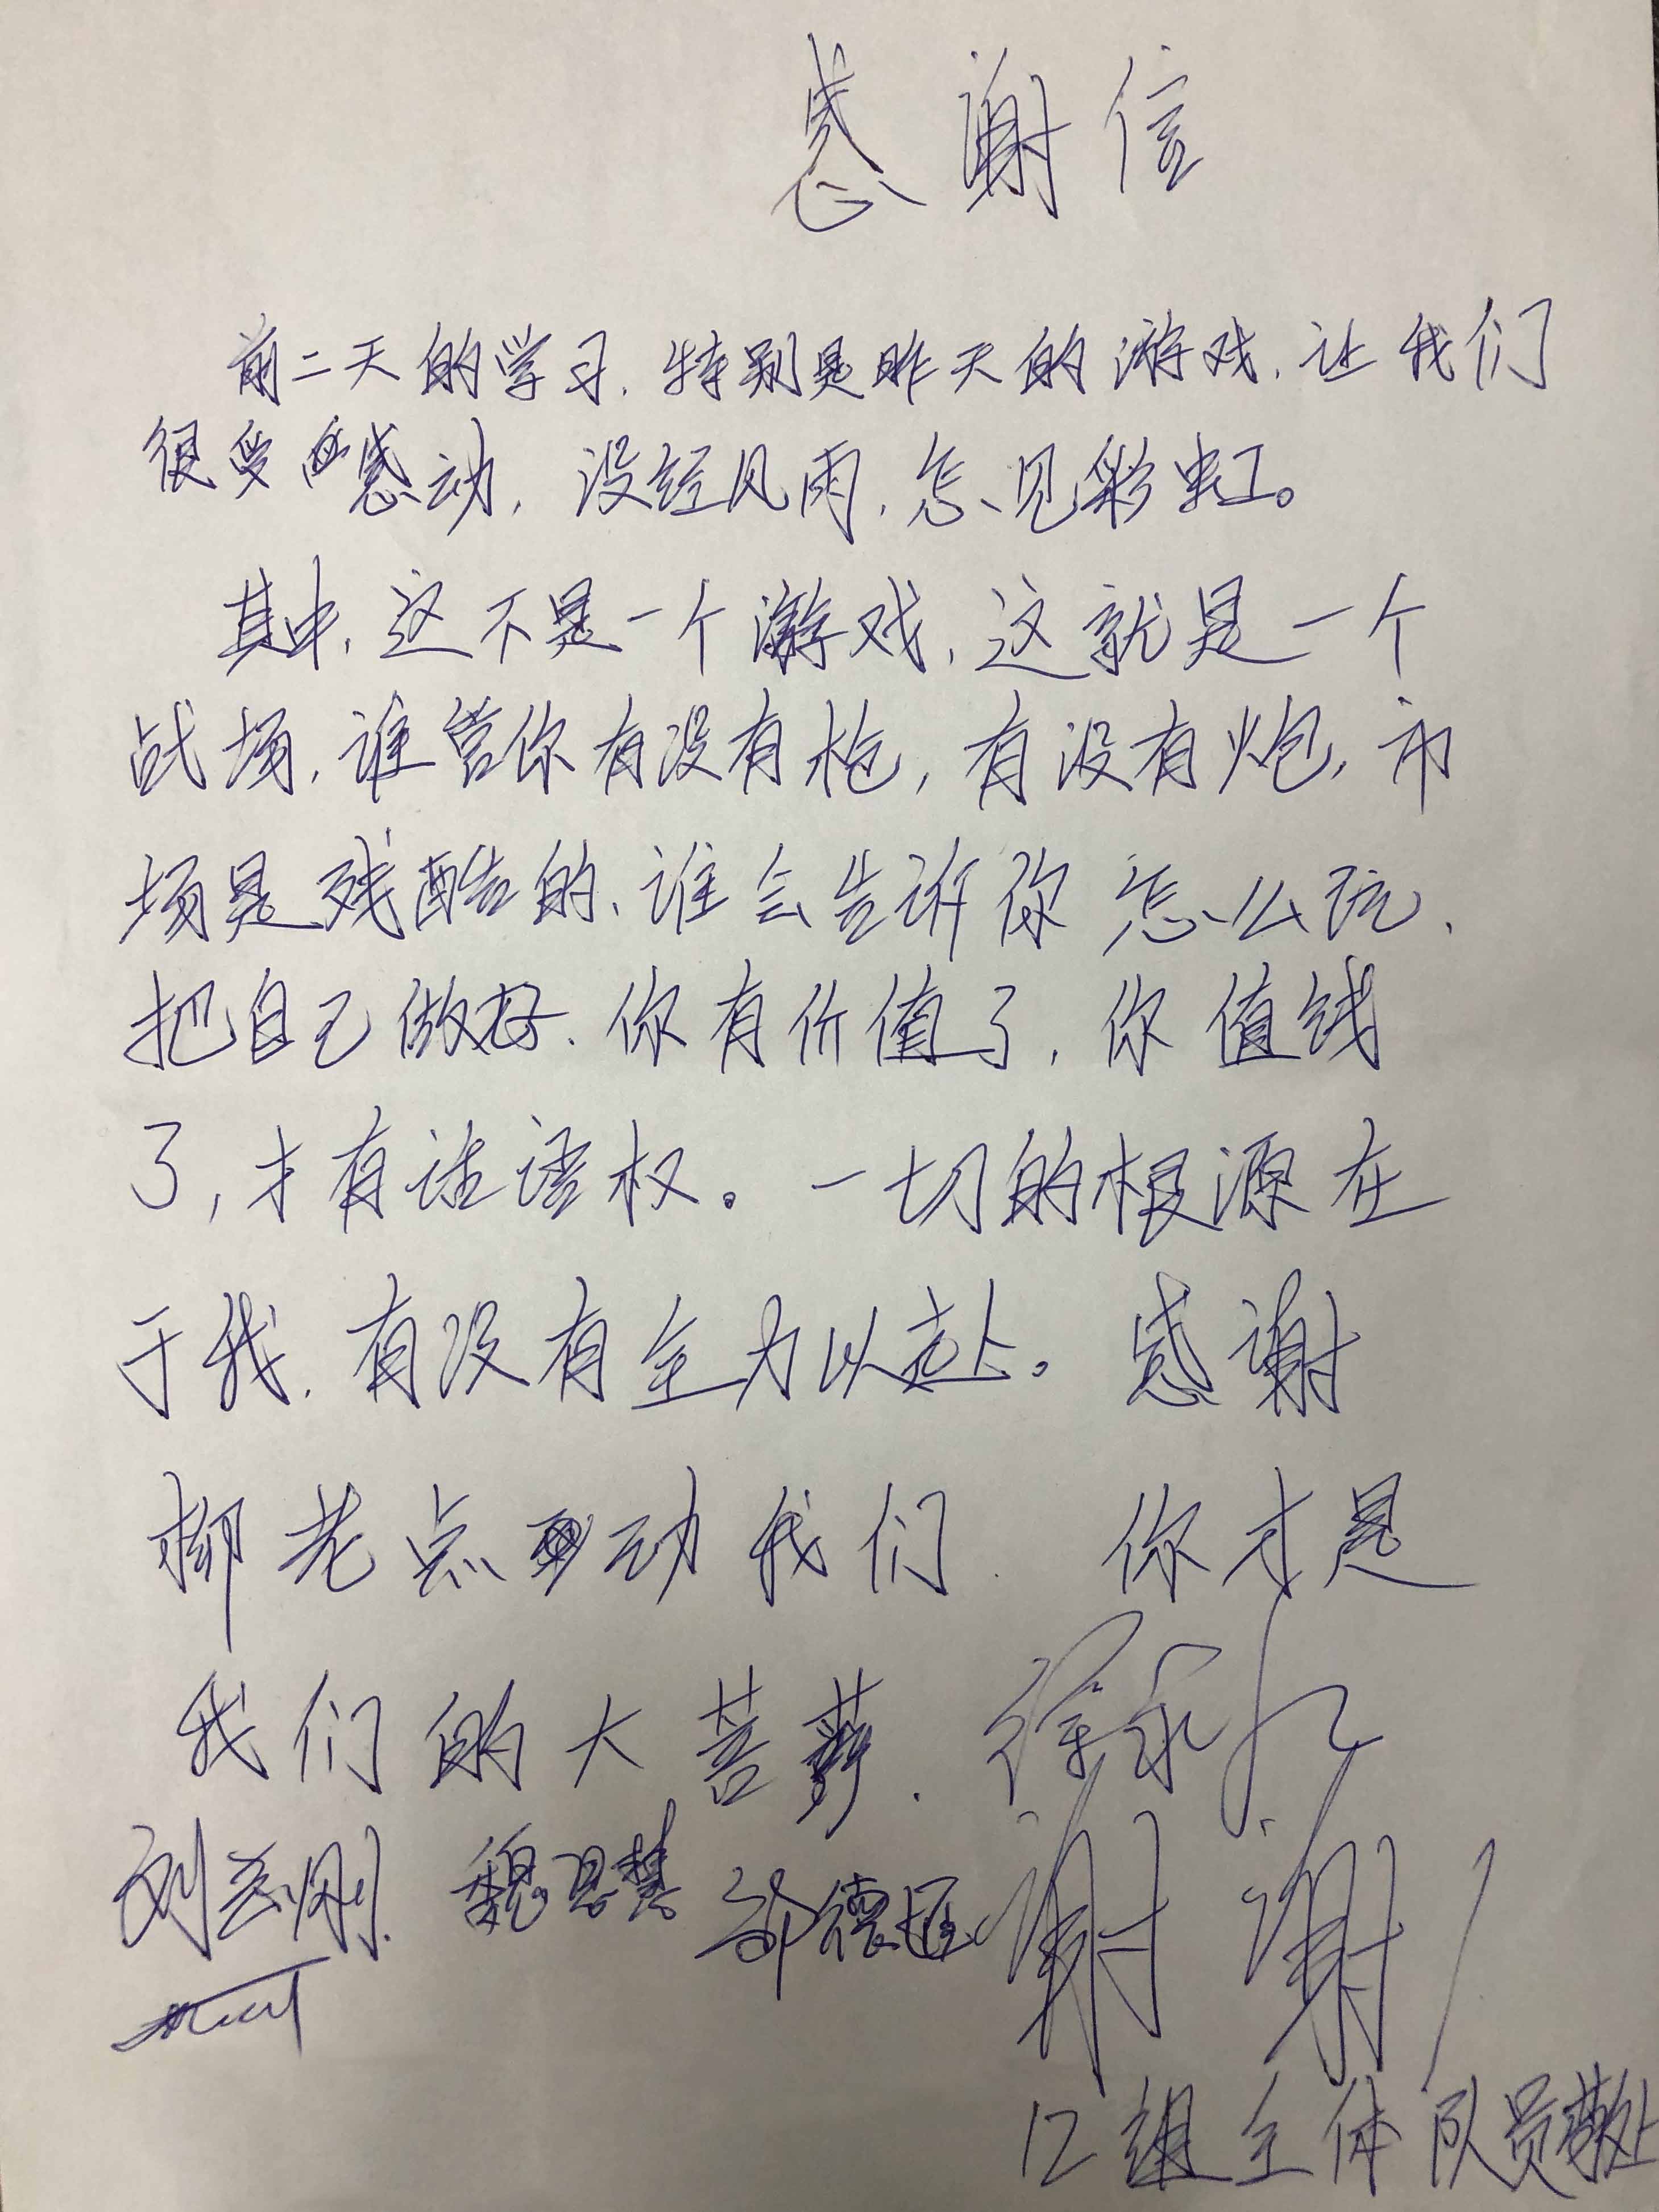 感谢信
前二天的学习.特别是昨天的游戏.让我们
很受感动,没经风雨,怎见彩虹。
其中,这不是一个游戏,这就是一个
战场,谁管你有没有枪,有没有炮,市
场是残酷的、谁会告诉你怎么玩、
把自己做好.你有价值了,你值钱
了,才有话语权。一切的根源在
于我.有没有全力以赴。感谢
柳老点动我们. 你才是
我们的大菩萨.
刘 刚 魏 德 谢谢!
12组全体队员敬上